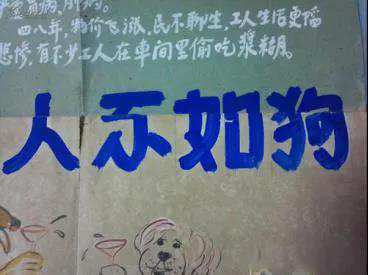 四八年,物价飞涨,民不聊生,工人生活更
悲惨,有不少工人在車间里偷吃漿糊。
人不如狗